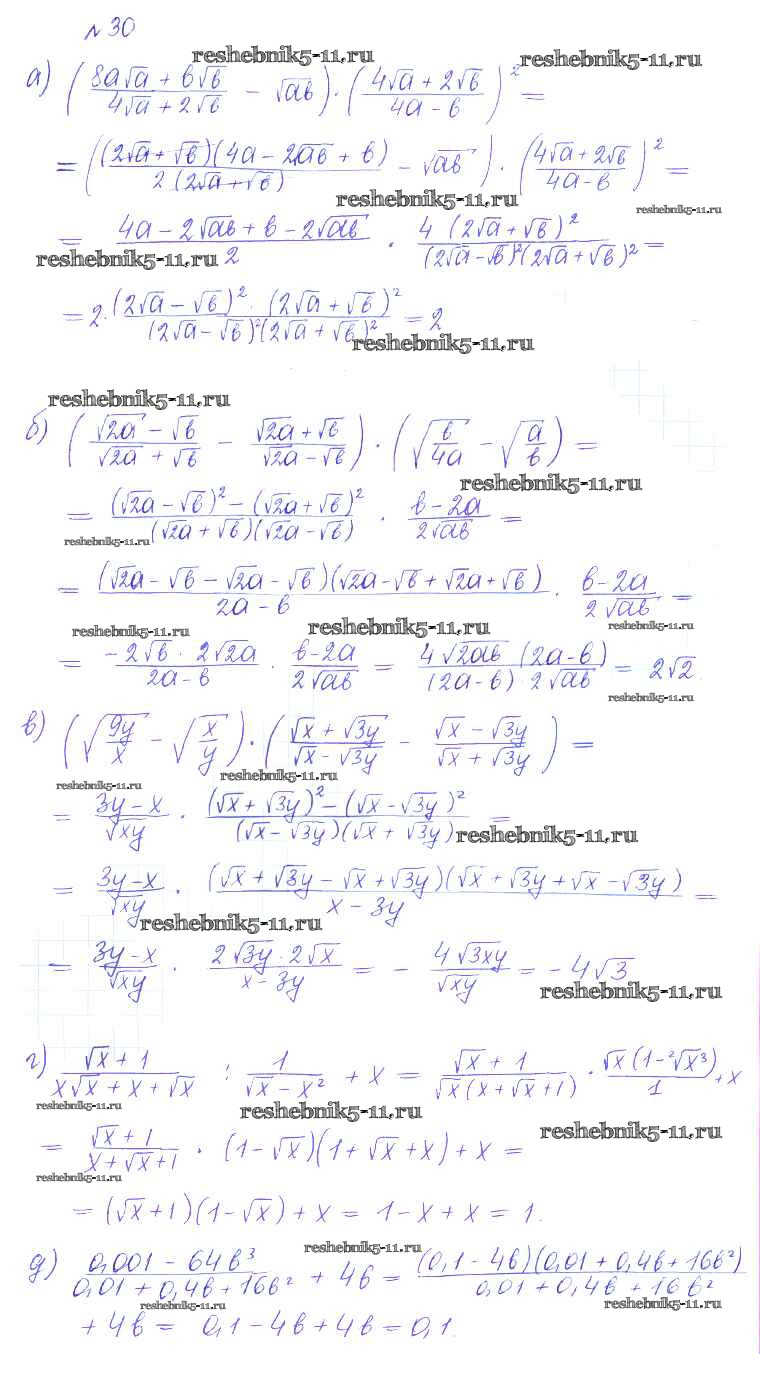 №30
reshebnik5-11.ru reshebnik5-11.ru
а) ((8a√a + b√b)/(4√a + 2√b) - √ab) · ((4√a + 2√b)/(4a - b))² =
= (((2√a + √b)(4a - 2√ab + b))/(2(2√a + √b)) - √ab) · ((4√a + 2√b)/(4a - b))² =
reshebnik5-11.ru reshebnik5-11.ru
= (4a - 2√ab + b - 2√ab)/2 · (4(2√a + √b)²)/((2√a - √b)²(2√a + √b)²) =
reshebnik5-11.ru
= 2 · ((2√a - √b)² · (2√a + √b)²)/((2√a - √b)²(2√a + √b)²) = 2
reshebnik5-11.ru
reshebnik5-11.ru
б) ((√2a - √b)/(√2a + √b) - (√2a + √b)/(√2a - √b)) · (√(b/4a) - √(a/b)) =
reshebnik5-11.ru
= ((√2a - √b)² - (√2a + √b)²)/((√2a + √b)(√2a - √b)) · (b - 2a)/(2√ab) =
reshebnik5-11.ru
= ((√2a - √b - √2a - √b)(√2a - √b + √2a + √b))/(2a - b) · (b - 2a)/(2√ab) =
reshebnik5-11.ru reshebnik5-11.ru reshebnik5-11.ru
= (-2√b · 2√2a)/(2a - b) · (b - 2a)/(2√ab) = (4√2ab (2a - b))/((2a - b) · 2√ab) = 2√2.
reshebnik5-11.ru
в) (√(9y/x) - √(x/y)) · ((√x + √3y)/(√x - √3y) - (√x - √3y)/(√x + √3y)) =
reshebnik5-11.ru reshebnik5-11.ru
= (3y - x)/√xy · ((√x + √3y)² - (√x - √3y)²)/((√x - √3y)(√x + √3y)) =
reshebnik5-11.ru
= (3y - x)/√xy · ((√x + √3y - √x + √3y)(√x + √3y + √x - √3y))/(x - 3y) =
reshebnik5-11.ru
= (3y - x)/√xy · (2√3y · 2√x)/(x - 3y) = - (4√3xy)/√xy = -4√3
reshebnik5-11.ru
г) (√x + 1)/(x√x + x + √x) : 1/(√x - x²) + x = (√x + 1)/(√x(x + √x + 1)) · (√x(1 - ²√x³))/1 + x
reshebnik5-11.ru reshebnik5-11.ru reshebnik5-11.ru
= (√x + 1)/(x + √x + 1) · (1 - √x)(1 + √x + x) + x =
reshebnik5-11.ru
= (√x + 1)(1 - √x) + x = 1 - x + x = 1.
reshebnik5-11.ru
д) (0,001 - 64b³)/(0,01 + 0,4b + 16b²) + 4b = ((0,1 - 4b)(0,01 + 0,4b + 16b²))/(0,01 + 0,4b + 16b²)
reshebnik5-11.ru reshebnik5-11.ru
+ 4b = 0,1 - 4b + 4b = 0,1.